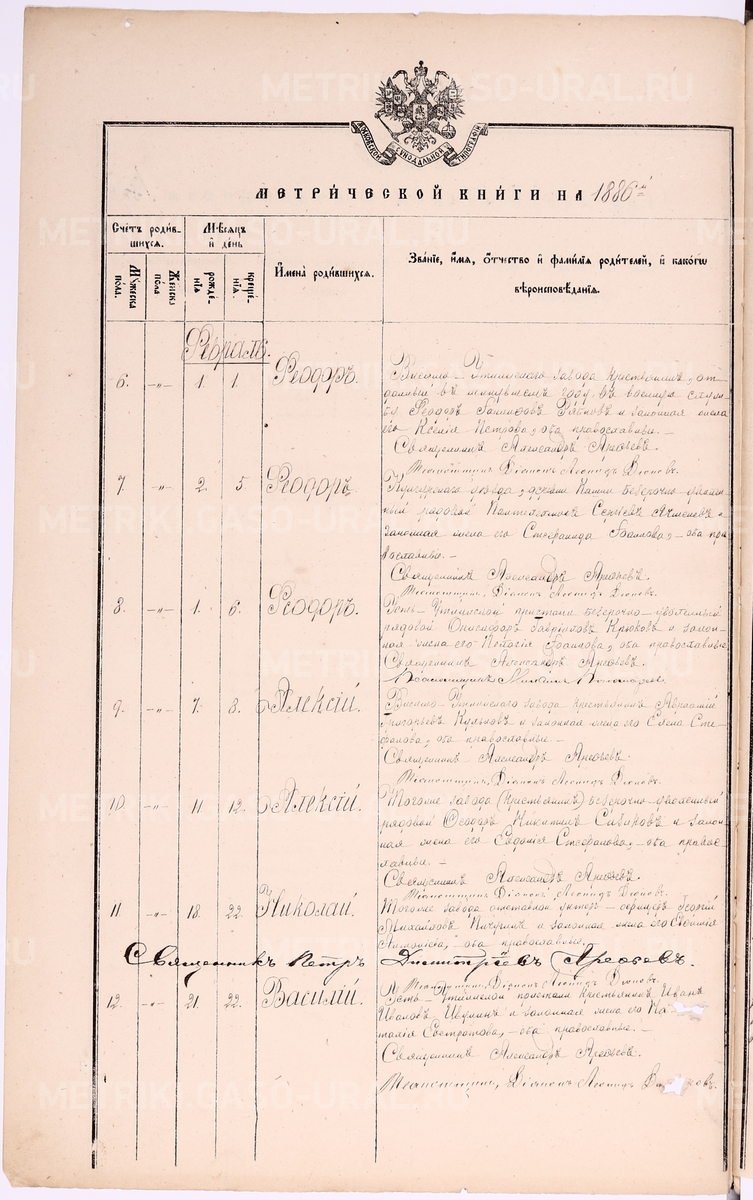 МОСКОВСКОЙ СѴНОДАЛЬНОЙ ТИПОГРАФІИ
МЕТРИ́ЧЕСКОЙ КНИ́ГИ НА 1886 й
Счётъ роди́в-
шихся.
Мѣ́сяцъ
и́ де́нь
И҆мена̀ роди́вшихся.
Зва́нїе, и҆́мя, ѻ҆́тчество и҆ фами́лїя роди́телей, и҆ како́гѡ
вѣроисповѣ́данїя.
Мꙋ́жеска по́ла.
Же́нска по́ла
рожде́-нїя
креще́-нїя.
Февраль.
6. -„- 1. 1. Ѳеодоръ.
Висимо-Уткинскаго завода крестьянинъ, от-
данный въ минувшемъ году въ военную служ-
бу Ѳеодоръ и законная жена
его Ксенія Петрова, оба православные.-
Священникъ Александръ Арефьевъ.
Псаломщикъ, Діаконъ Леонидъ
7. -„- 2. 5. Ѳеодоръ.
Кунгурскаго уѣзда, безсрочно-уволен-
ный рядовой и
законная жена его Стефанида - оба пра-
вославные.-
Священникъ Александръ Арефьевъ.
Псаломщикъ, Діаконъ Леонидъ
8. -„- 1. 6. Ѳеодоръ.
Усть-Уткинской пристани безсрочно-уволенный
рядовой Онисифоръ Гавріиловъ Крюковъ и закон-
ная жена его Пелагія оба православные
Священникъ Александръ Арефьевъ.
Псаломщикъ
9. -„- 7. 8. Алексій.
Висимо-Уткинскаго завода крестьянинъ
Григорьевъ и законная жена его Елена Сте-
фанова, оба православные.-
Священникъ Александръ Арефьевъ.
Псаломщикъ, Діаконъ Леонидъ
10. -„- 11. 12. Алексій.
Тогоже завода (крестьянинъ) безсрочно-уволенный
рядовой Ѳеодоръ Никитинъ и закон-
ная жена его Евдокія Стефанова, - оба право-
славные.-
Священникъ Александръ Арефьевъ.
Псаломщикъ, Діаконъ Леонидъ
11. -„- 18. 22. Николай.
Тогоже завода отставной унтеръ-офицеръ Георгій
Михайловъ Пичугинъ и законная жена его Евѳимія
оба православные.
Священникъ Петръ Димитріевъ Арефьевъ.
Псаломщикъ, Діаконъ Леонидъ
12. -„- 21. 22. Василій.
Усть-Уткинской пристани крестьянинъ Иванъ
Ивановъ и законная жена его На-
талія - оба православные.-
Священникъ Александръ Арефьевъ.
Псаломщикъ, Діаконъ Леонидъ
METRIKI.GASO-URAL.RU